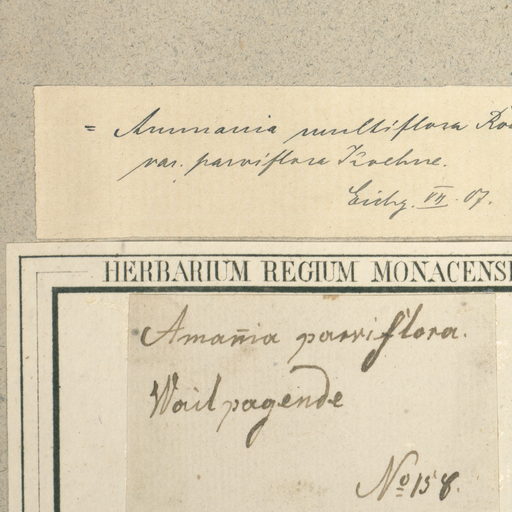 = Ammania multiflora Ro
var. parviflora Koehne.
Eichg. VII. 07.
HERBARIUM REGIUM MONACENS
Aman̄ia parviflora.
Wail pagende
No 158.